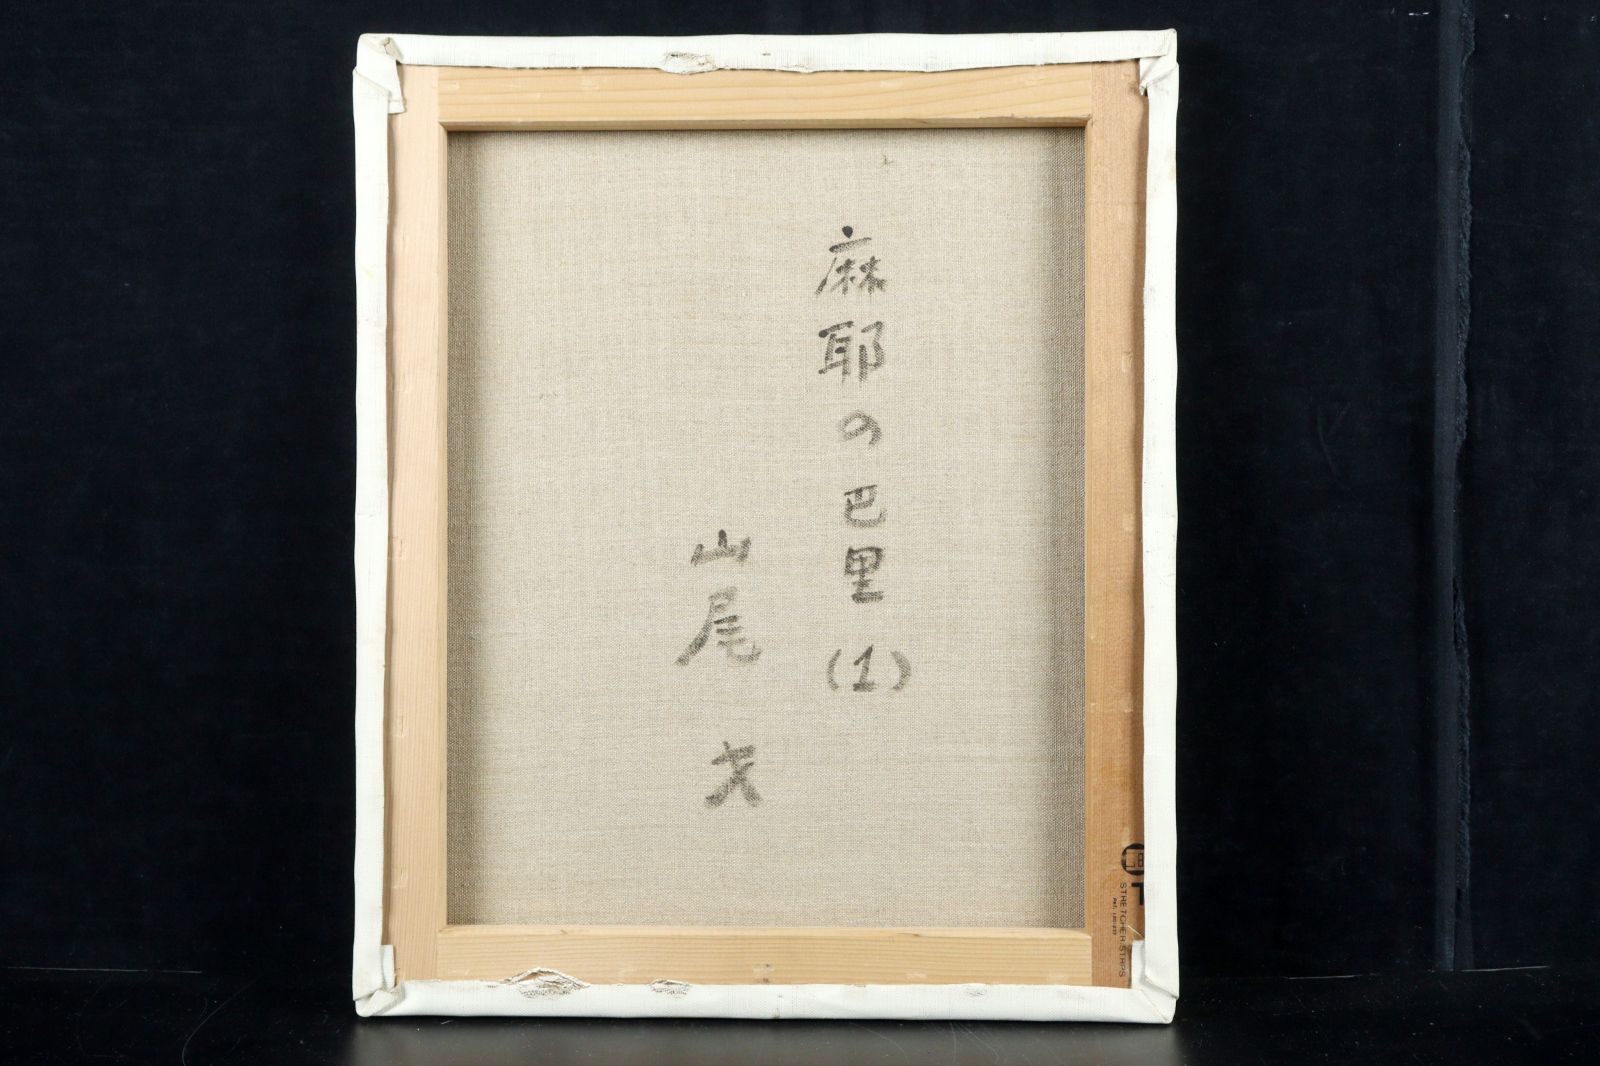 麻耶の巴里(1)
山尾 才
STRETCHER STRIPS